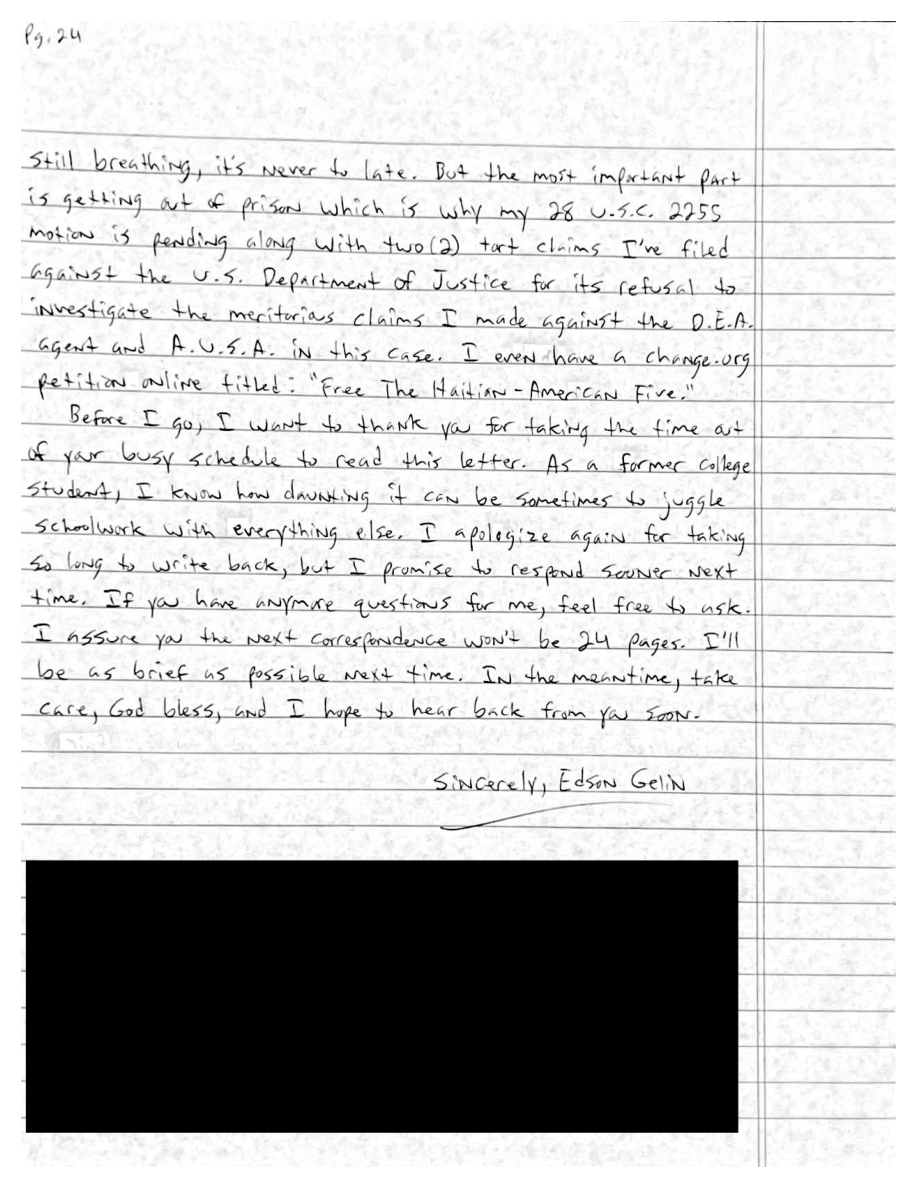 Pg. 24
Still breathing, it's never to late. But the most important part
is getting out of prison which is why my 28 U.S.C. 2255
motion is pending along with two (2) tort claims I've filed
against the U.S. Department of Justice for its refusal to
investigate the meritorious claims I made against the D.E.A.
agent and A.U.S.A. in this case. I even have a change.org
petition online titled: "Free The Haitian-American Five."
Before I go, I want to thank you for taking the time out
of your busy schedule to read this letter. As a former college
student, I know how daunting it can be sometimes to juggle
schoolwork with everything else. I apologize again for taking
so long to write back, but I promise to respond sooner next
time. If you have anymore questions for me, feel free to ask.
I assure you the next correspondence won't be 24 pages. I'll
be as brief as possible next time. In the meantime, take
care, God bless, and I hope to hear back from you soon.
Sincerely, Edson Gelin